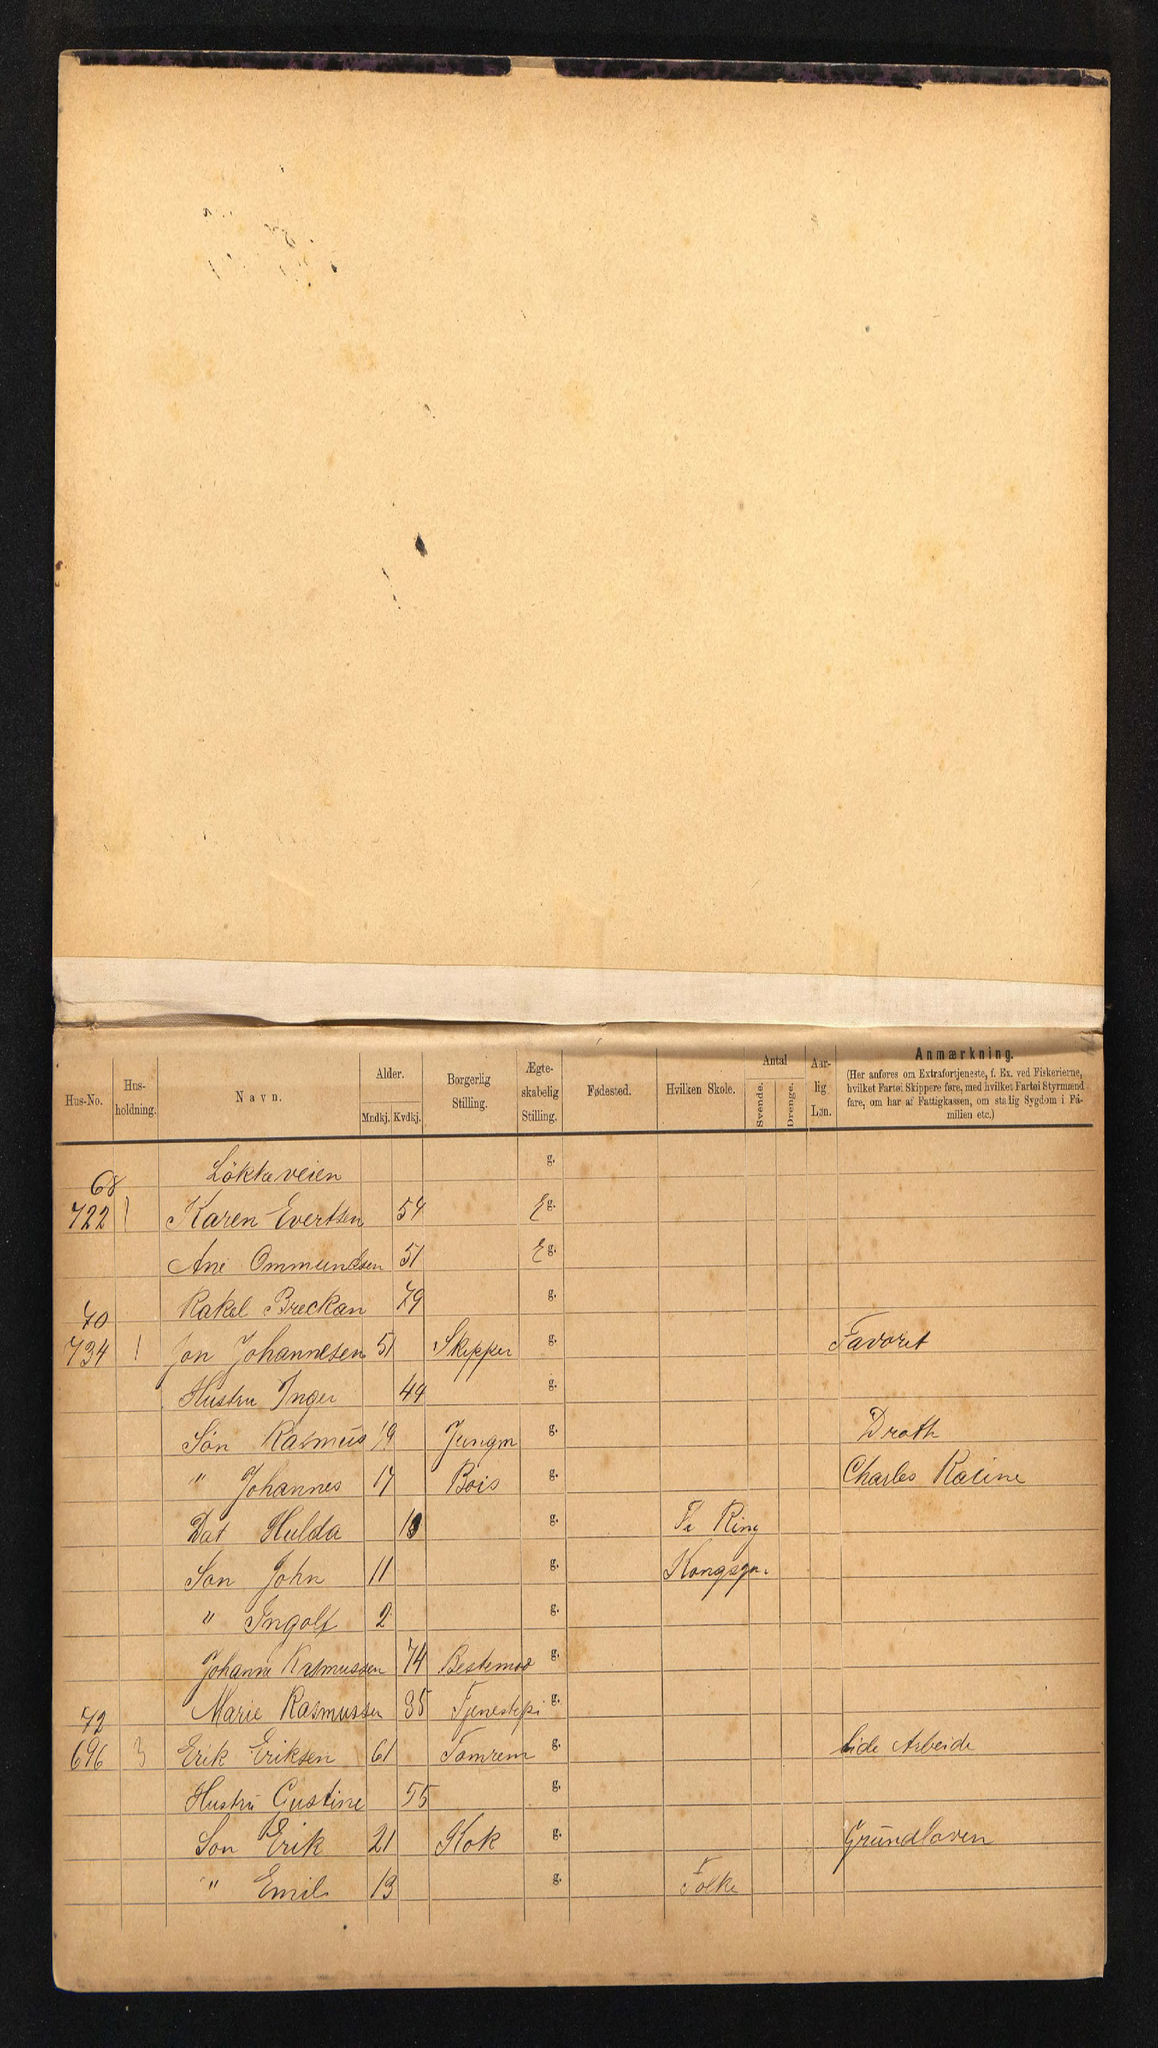 Hus-No. Hus-holdning. Navn. Alder. Mndkj. Kvdkj. Borgerlig Stilling. Ægte-skabelig Stilling. Fødested. Hvilken Skole. Antal Svende. Drenge. Aar-lig Løn. Anmærkning.
(Her anføres om Extrafortjeneste, f. Ex. ved Fiskerierne,
hvilket Fartøi Skippere føre, med hvilket Fartøi Styrmænd
fare, om har af Fattigkassen, om stadig Sygdom i Fa-
milien etc.)
68 Lökkeveien g.
722 1 Karen Evertsen 54 Eg.
Ane Ommundsen 51 Eg.
70 Rakel Breckan 79 g.
734 1 Jon Johannesen 51 Skipper g. Favoret
Hustru Inger 49 g.
Sön Rasmus 19 Jungm g. Droth
" Johannes 17 Bois g. Charles Racine
Dat Hulda g. Ring
Søn John 11 g. Kongsgr.
" Ingolf 2 g.
Johanne Rasmussen 74 Bestemod g.
72 Marie Rasmussen 35 Tjenestepi g.
696 3 Erik Eriksen 61 Tømrem g. lide Arbeide
Hustru Gustine 55 g.
Søn Erik 21 Kok g. Grundloven
" Emil 13 g. Folke